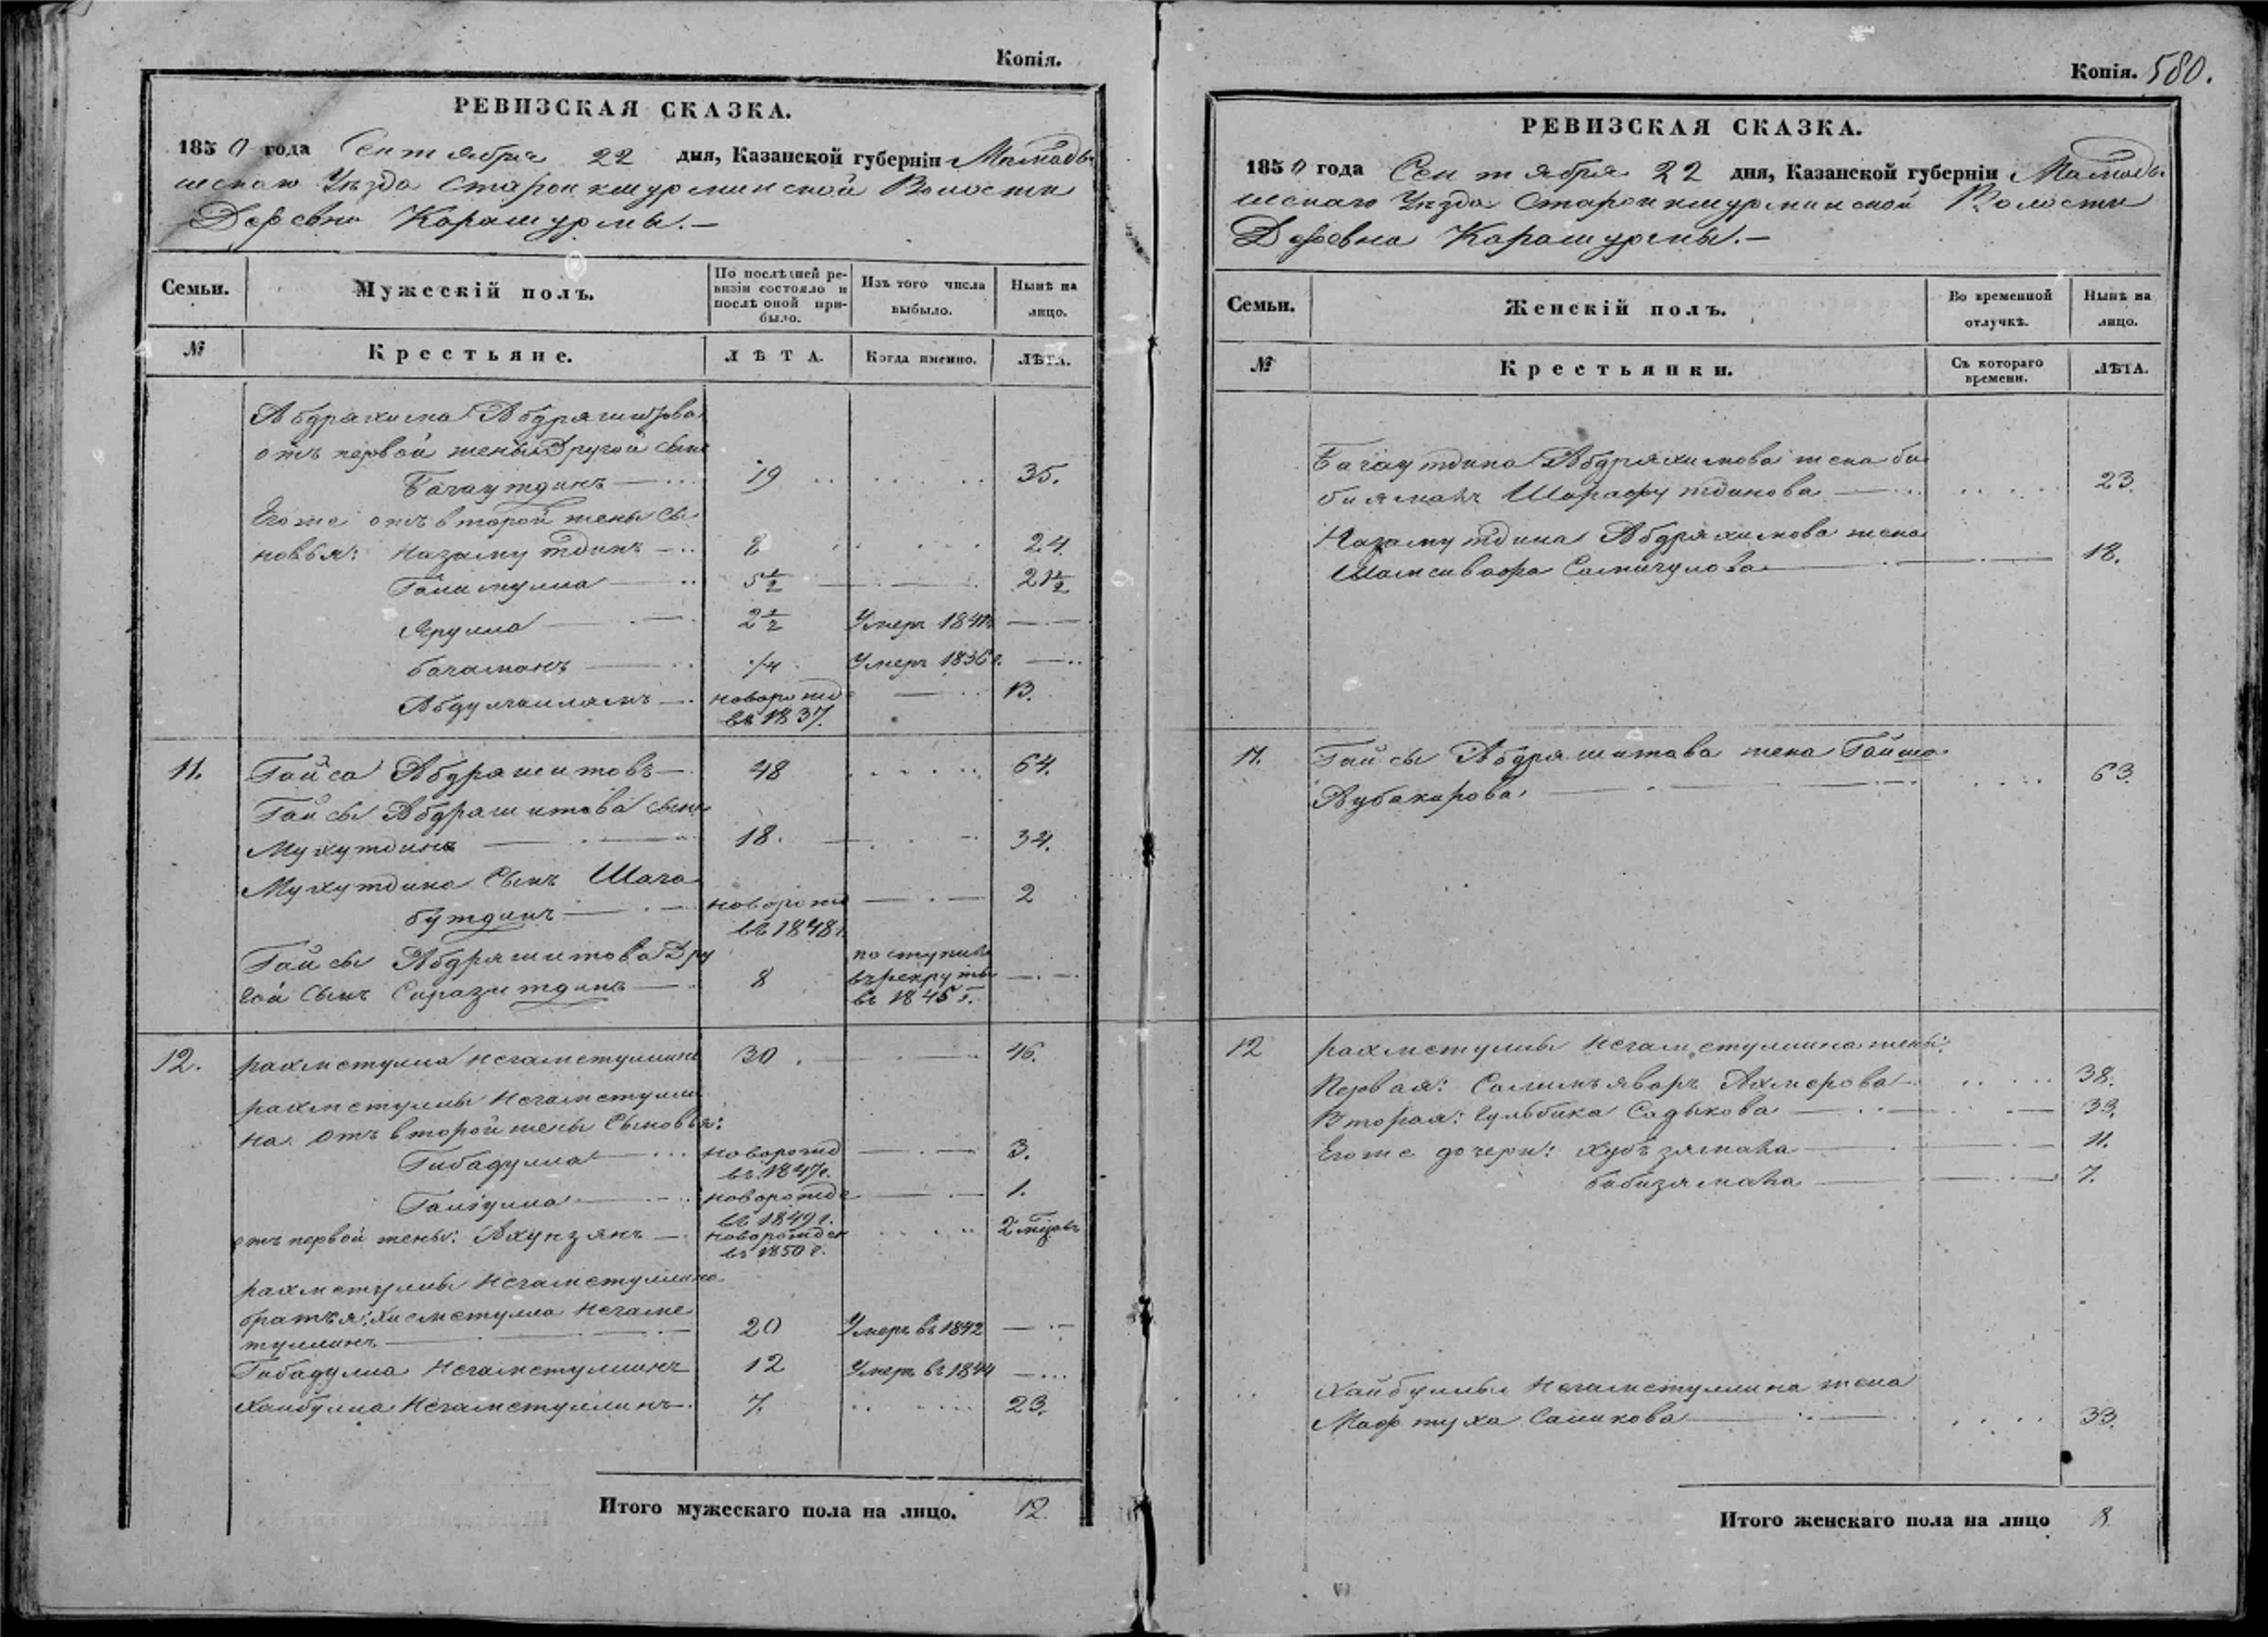 Копія.
РЕВИЗСКАЯ СКАЗКА.
1850 года Сентября 22 дня, Казанской губерніи Мамады-
шскаго Уѣзда Старокшурминской Волости
Деревни Карашурмы.—
Семьи.
Мужескій полъ.
По послѣдней ре-
визіи состояло и
послѣ оной при-
было.
Изъ того числа
выбыло.
Нынѣ на
лицо.
№
Крестьяне.
ЛѢТА.
Когда именно.
ЛѢТА.
Абдрахима Абдряшитова
отъ первой жены Другой сынъ
Багаутдинъ 19 35.
Егоже отъ второй жены сы-
новья: Назамутдинъ 8 24.
Галимулла 5½ 21½
Ярулла 2½ Умеръ 1841
Багаманъ ¼ Умеръ 1836 г.
Абдулгалламъ новорожд 13.
въ 1837.
11. Гайса Абдряшитовъ 48 64.
Гайсы Абдрашитова сынъ
Мухутдинъ 18. 34.
Мухутдина сынъ Шага
бутдинъ новорожд 2
въ 1848 г.
Гайсы Абдряшитова Дру
гой сынъ Сиразитдинъ 8 поступилъ
въ рекруты
въ 1845 г.
12. рахметулла Негаметуллинъ 30. 46.
рахметуллы Негаметулли
на отъ второй жены Сыновья:
Гибадулла новорожд 3.
въ 1847 г.
Галіулла новорожде 1.
въ 1849 г.
отъ первой жены: Ахунзянъ новорожден 2 мѣсяцъ
въ 1850 г.
рахметуллы Негаметуллина
братья: Хисметулла Негаме
туллинъ 20 Умеръ въ 1842
Гибадулла Негаметуллинъ 12 Умеръ въ 1844
Хайбулла Негаметуллинъ 7. 23.
Итого мужескаго пола на лицо. 12.
Копія. 580.
РЕВИЗСКАЯ СКАЗКА.
1850 года Сентября 22 дня, Казанской губерніи Мамады-
шскаго Уѣзда Старокшурминской Волости
Деревни Карашурмы.—
Семьи.
Женскій полъ.
Во временной
отлучкѣ.
Нынѣ на
лицо.
№
Крестьянки.
Съ котораго
времени.
ЛѢТА.
Багаутдина Абдряхимова жена би
биямалъ Шарафутдинова 23.
Назамутдина Абдряхимова жена
Шамсивафа Самигулова 18.
11. Гайсы Абдряшитова жена Гайша
Аубакирова 63.
12 рахметуллы Негаметуллина жены:
Первая: Салимъяваръ Ахмерова 38.
Вторая: Гульбика Садыкова 33.
Егоже дочери: хубъзямала 11.
бибизямала 7.
Хайбуллы Негаметуллина жена
Мафтуха Саликова 33.
Итого женскаго пола на лицо 8